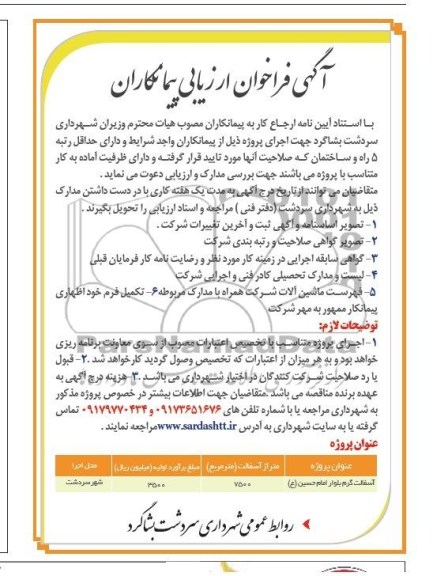 آگهی فراخوان ارزیابی پیمانکاران
با استناد آیین نامه ارجاع کار به پیمانکاران مصوب هیات محترم وزیران شهرداری
سردشت بشاگرد جهت اجرای پروژه ذیل از پیمانکاران واجد شرایط و دارای حداقل رتبه
۵ راه و ساختمان که صلاحیت آنها مورد تایید قرار گرفته و دارای ظرفیت آماده به کار
متناسب با پروژه می باشند جهت بررسی مدارک و ارزیابی دعوت می نماید .
متقاضیان می توانند از تاریخ درج آگهی به مدت یک هفته کاری با در دست داشتن مدارک
ذیل به شهرداری سردشت (دفتر فنی ) مراجعه و اسناد ارزیابی را تحویل بگیرند .
۱- تصویر اساسنامه و آگهی ثبت و آخرین تغییرات شرکت .
۲- تصویر گواهی صلاحیت و رتبه بندی شرکت
۳- گواهی سابقه اجرایی در زمینه کار مورد نظر و رضایت نامه کار فرمایان قبلی
۴- لیست و مدارک تحصیلی کادر فنی و اجرایی شرکت
۵- فهرست ماشین آلات شرکت همراه با مدارک مربوطه ۶- تکمیل فرم خود اظهاری
پیمانکار ممهور به مهر شرکت
توضیحات لازم:
۱- اجرای پروژه متناسب با تخصیص اعتبارات مصوب از سوی معاونت برنامه ریزی
خواهد بود و به هر میزان از اعتبارات که تخصیص وصول گردید کارخواهد شد .۲- قبول
یا رد صلاحیت شرکت کنندگان در اختیار شهرداری می باشد .۳- هزینه درج آگهی به
عهده برنده مناقصه می باشد .متقاضیان جهت اطلاعات بیشتر در خصوص پروژه مذکور
به شهرداری مراجعه یا با شماره تلفن های ۰۹۱۷۳۶۵۱۶۷۶ و ۰۹۱۷۹۷۷۰۴۳۴ تماس
گرفته یا به سایت شهرداری به آدرس www.sardashtt.ir مراجعه نمایند .
عنوان پروژه
عنوان پروژه متراژ آسفالت (مترمربع) مبلغ برآورد اولیه (میلیون ریال) محل اجرا
آسفالت گرم بلوار امام حسین (ع) ۷۵۰۰ ۳۵۰۰ شهر سردشت
روابط عمومی شهرداری سردشت بشاگرد
ParsNamadData